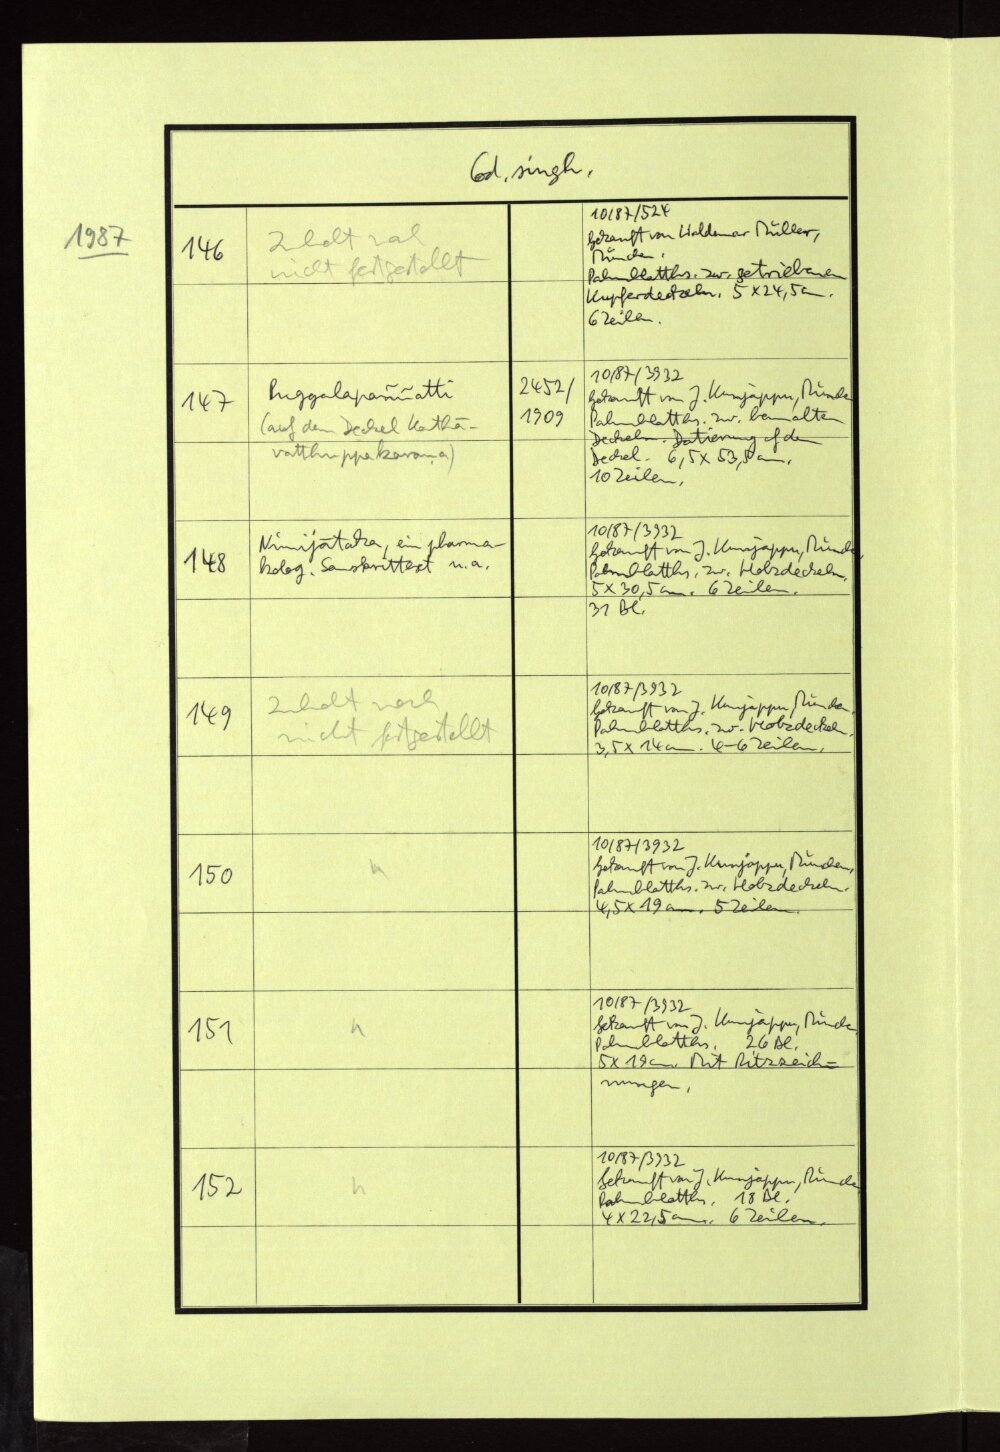 Cod. singh.
1987
146
Inhalt noch
nicht festgestellt
10/87/524
Gekauft von Waldemar Müller,
München.
Palmblatths. zw. getriebenen
Kupferdeckeln. 5 x 24,5 cm.
6 Zeilen.
147
Puggalapaññatti
(auf dem Deckel Kathā-
vatthuppakaraṇa)
2452/
1909
10/87/3932
Gekauft von J. Kunjappu, München
Palmblatths. zw. bemalten
Deckeln. Datierung auf dem
Deckel. 6,5 x 53,5 cm.
10 Zeilen.
148
Nimijātaka, ein pharma-
kolog. Sanskrittext u.a.
10/87/3932
Gekauft von J. Kunjappu, München,
Palmblatths. zw. Holzdeckeln.
5 x 30,5 cm. 6 Zeilen.
31 Bl.
149
Inhalt noch
nicht festgestellt
10/87/3932
Gekauft von J. Kunjappu, München.
Palmblatths. zw. Holzdeckeln.
3,5 x 14 cm. 4-6 Zeilen.
150
"
10/87/3932
Gekauft von J. Kunjappu, München.
Palmblatths. zw. Holzdeckeln.
4,5 x 19 cm. 5 Zeilen.
151
"
10/87/3932
Gekauft von J. Kunjappu, München
Palmblatths. 26 Bl.
5 x 19 cm. Mit Ritzzeich=
nungen.
152
"
10/87/3932
Gekauft von J. Kunjappu, München
Palmblatths. 18 Bl.
4 x 22,5 cm. 6 Zeilen.